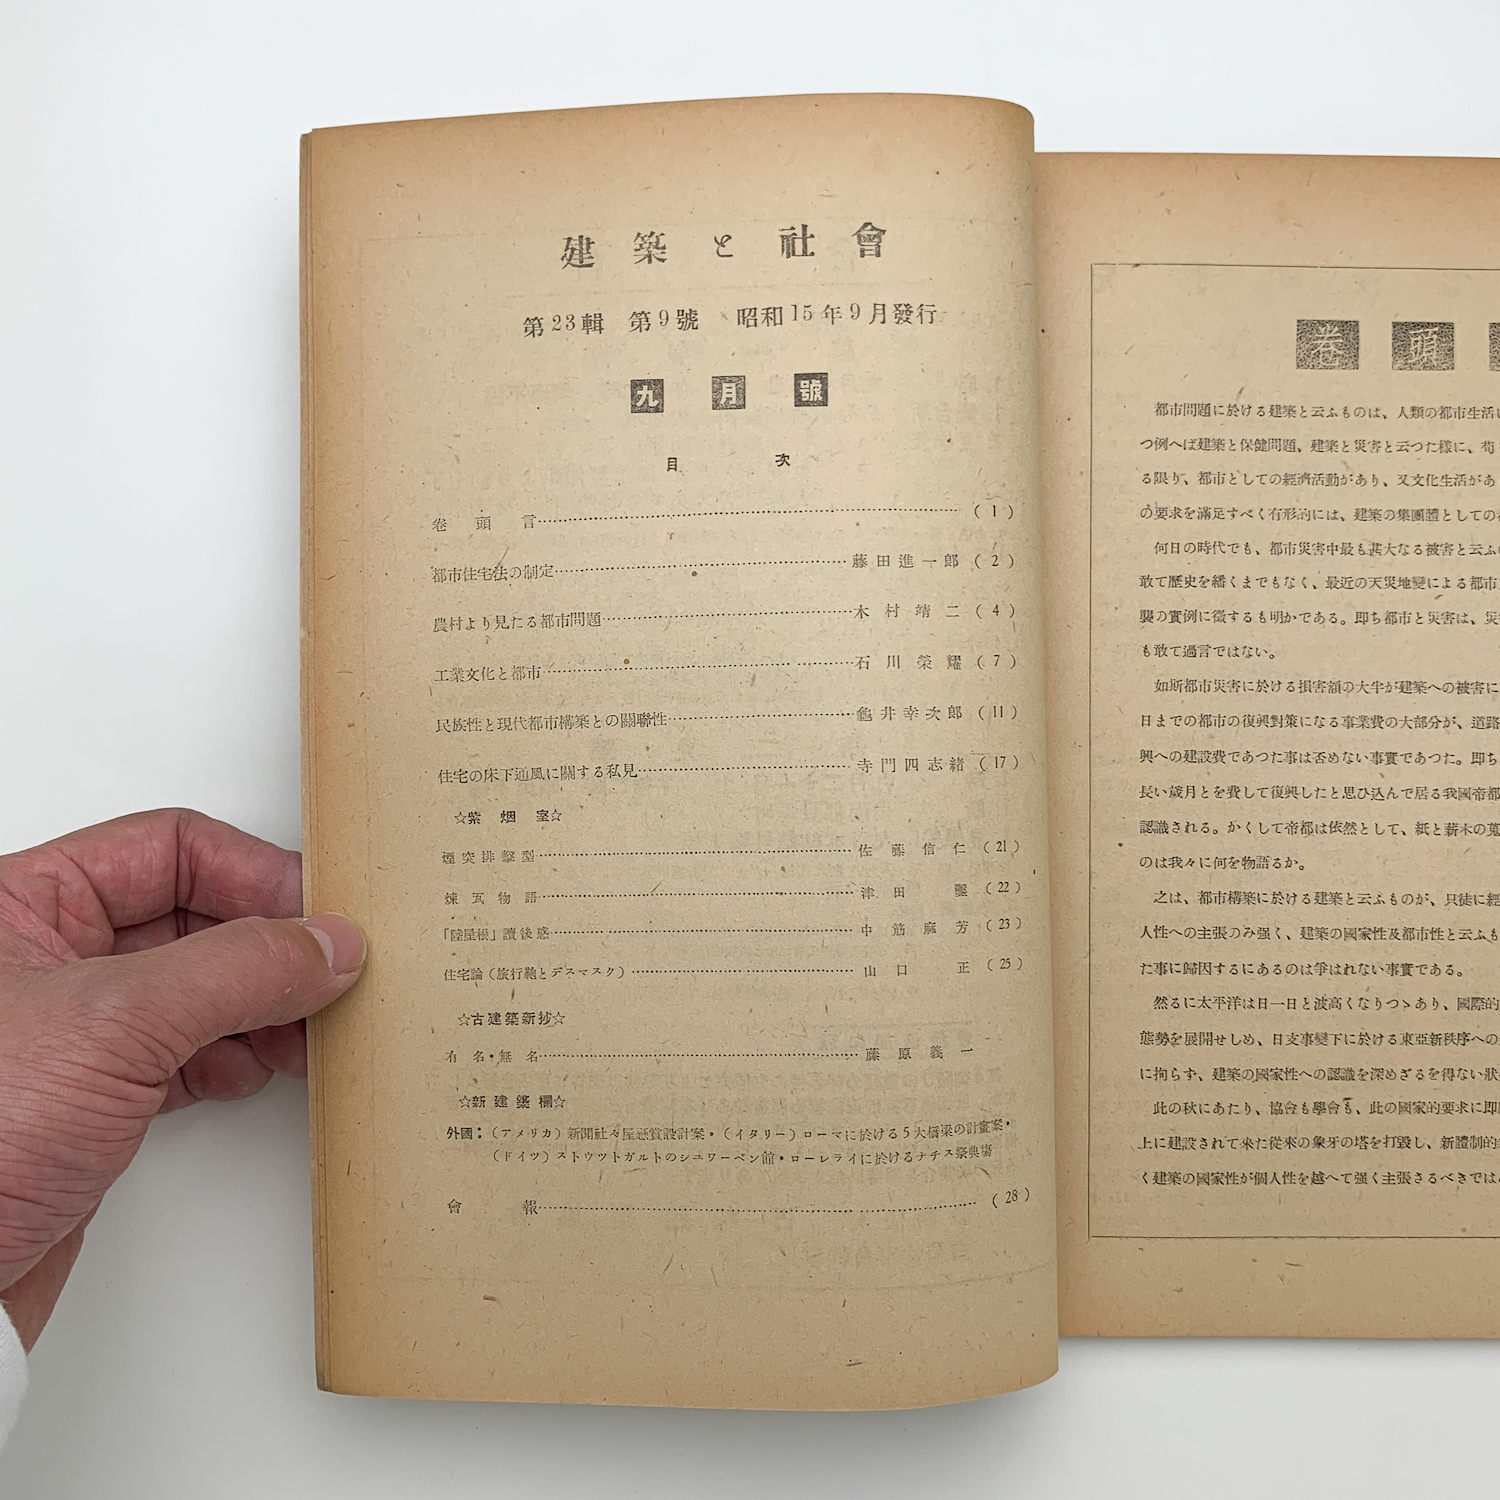 建築と社會
第23輯 第9號 昭和15年9月發行
九月號
目次
卷頭言 (1)
都市住宅法の制定 藤田進一郎 (2)
農村より見たる都市問題 木村靖二 (4)
工業文化と都市 石川榮耀 (7)
民族性と現代都市構築との關聯性 龜井幸次郎 (11)
住宅の床下通風に關する私見 寺門四志緒 (17)
☆紫烟室☆
煙突排擊型 佐藤信仁 (21)
煉瓦物語 津田鑿 (22)
「陸屋根」讀後感 中筋 芳 (23)
住宅論(旅行鞄とデスマスク) 山口正 (25)
☆古建築新抄☆
有名・無名 藤原義一
☆新建築欄☆
外國:(アメリカ)新聞社々屋懸賞設計案・(イタリー)ローマに於ける5大橋梁の計畫案・
(ドイツ)ストウツトガルトのシユワーベン館・ローレライに於けるナチス祭典場
會報 (28)
卷頭
都市問題に於ける建築と云ふものは、人類の都市生活
つ例へば建築と保健問題、建築と災害と云つた樣に、苟
る限り、都市としての經濟活動があり、又文化生活があ
の要求を滿足すべく有形的には、建築の集團體としての
何日の時代でも、都市災害中最も甚大なる被害と云ふ
敢て歷史を繙くまでもなく、最近の天災地變による都市
襲の實例に徵するも明かである。即ち都市と災害は、災
も敢て過言ではない。
如斯都市災害に於ける損害額の大半が建築への被害に
日までの都市の復興對策になる事業費の大部分が、道路
興への建設費であつた事は否めない事實であつた。即ち
長い歲月とを費して復興したと思ひ込んで居る我國帝都
認識される。かくして帝都は依然として、紙と薪木の蒐
のは我々に何を物語るか。
之は、都市構築に於ける建築と云ふものが、只徒に經
人性への主張のみ强く、建築の國家性及都市性と云ふも
た事に歸因するにあるのは爭はれない事實である。
然るに太平洋は日一日と波高くなりつゝあり、國際的
態勢を展開せしめ、日支事變下に於ける東亞新秩序への
に拘らず、建築の國家性への認識を深めざるを得ない狀
此の秋にあたり、協會も學會も、此の國家的要求に即
上に建設されて來た從來の象牙の塔を打毀し、新體制的
く建築の國家性が個人性を越へて强く主張さるべきでは